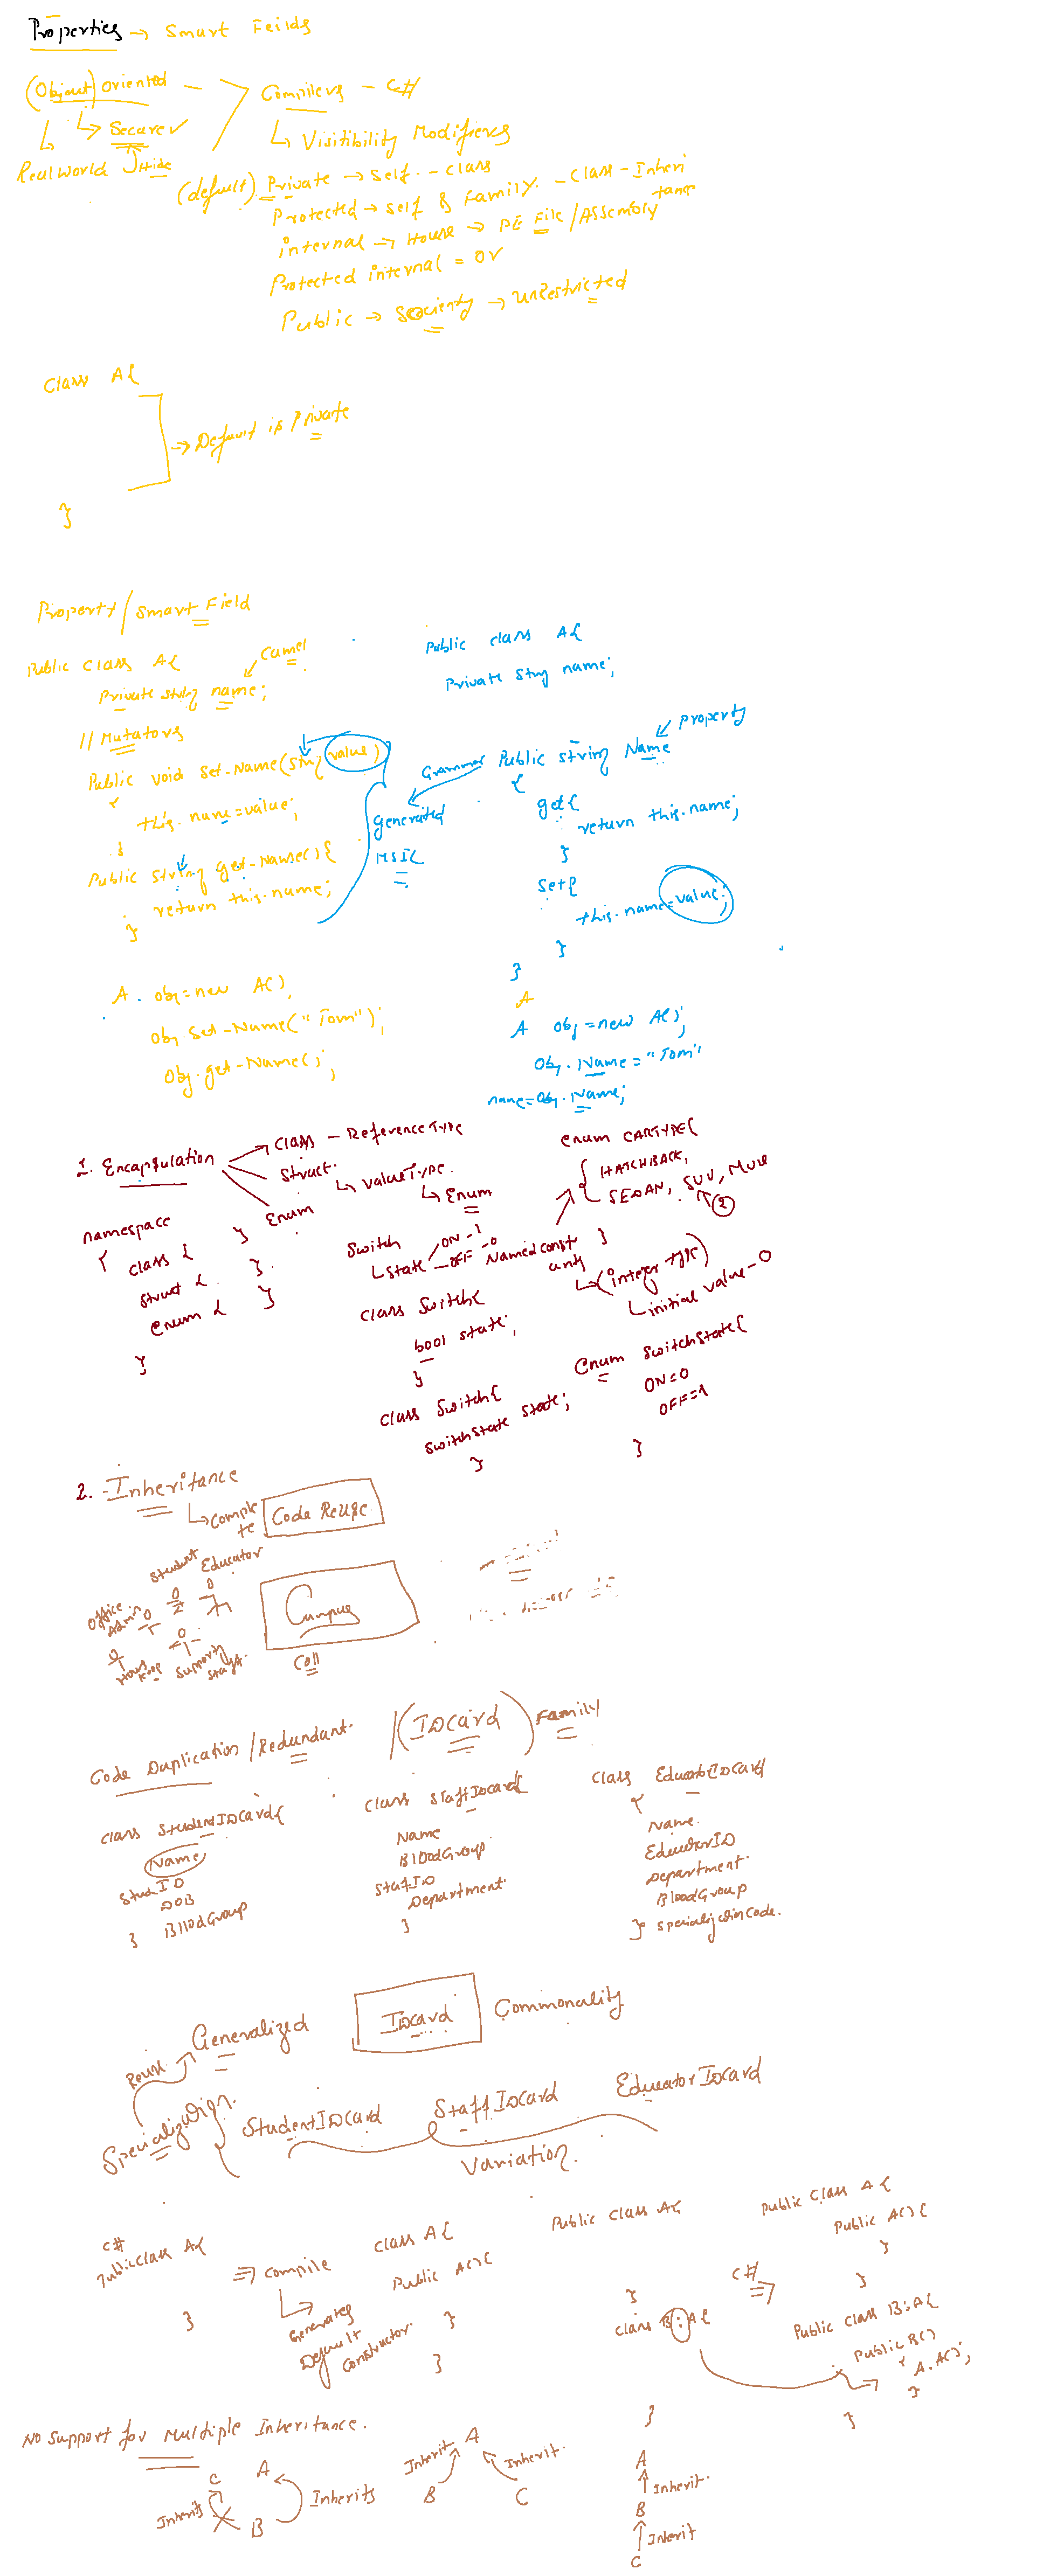 Properties → Smart Feilds
(Object) oriented — Compilers - C#
↳ Secure ✓
↳ Visitibility Modifiers
Real World Hide
(default) Private → Self. - Class
Protected → Self & Family. - Class - Inheri
tance
internal → House → PE File / Assembly
Protected internal = or
Public → Society → unRestricted
Class A{
→ Default is Private
}
Property / Smart Field
Camel
Public Class A{
Private string name;
// Mutators
Public void Set-Name(string value)
{
this.name=value;
}
Public string get-Name(){
return this.name;
}
A obj=new A();
Obj.Set-Name("Tom");
Obj.get-Name();
Public class A{
Private string name;
Property
Grammer Public string Name
{
Generated
MSIL
get{
return this.name;
}
Set{
this.name=value;
}
}
A
A obj=new A();
Obj.Name="Tom"
name=Obj.Name;
1. Encapsulation
Class - Reference Type
Struct
↳ valueType.
↳ Enum
Enum
namespace
{ class { }
Struct { }
enum { }
}
Switch
↳ State
ON - 1
OFF - 0
Named const
ants
enum CARTYPE{
HATCHBACK,
SEDAN, SUV, MUV
2
}
↳ (integer type)
↳ initial value - 0
class Switch{
bool state;
}
Class Switch{
SwitchState state;
}
Enum SwitchState{
ON=0
OFF=1
}
2. Inheritance
↳ Comple
te
Code Reuse.
Student Educator
Office
Admin
House
Keep
Support
Staff.
Campus
Coll
Code Duplication / Redundant. / (IDCard) Family
class StudentIDCard{
Name
StudID
DOB
BloodGroup
}
Class StaffIDcard{
Name
BloodGroup
StaffID
Department
}
Class EducatorIDCard
{
Name.
EducatorID
Department.
BloodGroup
} SpecializationCode.
Generalized IDcard Commonality
Reuse.
Specialization.
StudentIDCard StaffIDCard EducatorIDCard
Variation.
C#
Public class A{
}
⇒ Compile
↳ Generates
Default
Constructor.
Class A{
Public A(){
}
}
Public Class A{
}
class B:A{
}
C#
⇒
Public Class A{
Public A(){
}
}
Public Class B:A{
Public B()
{ A.A();
}
}
No Support for Multiple Inheritance.
C A
Inherits B Inherits
A
Inherit Inherit.
B C
A
↑ Inherit.
B
↑ Inherit
C